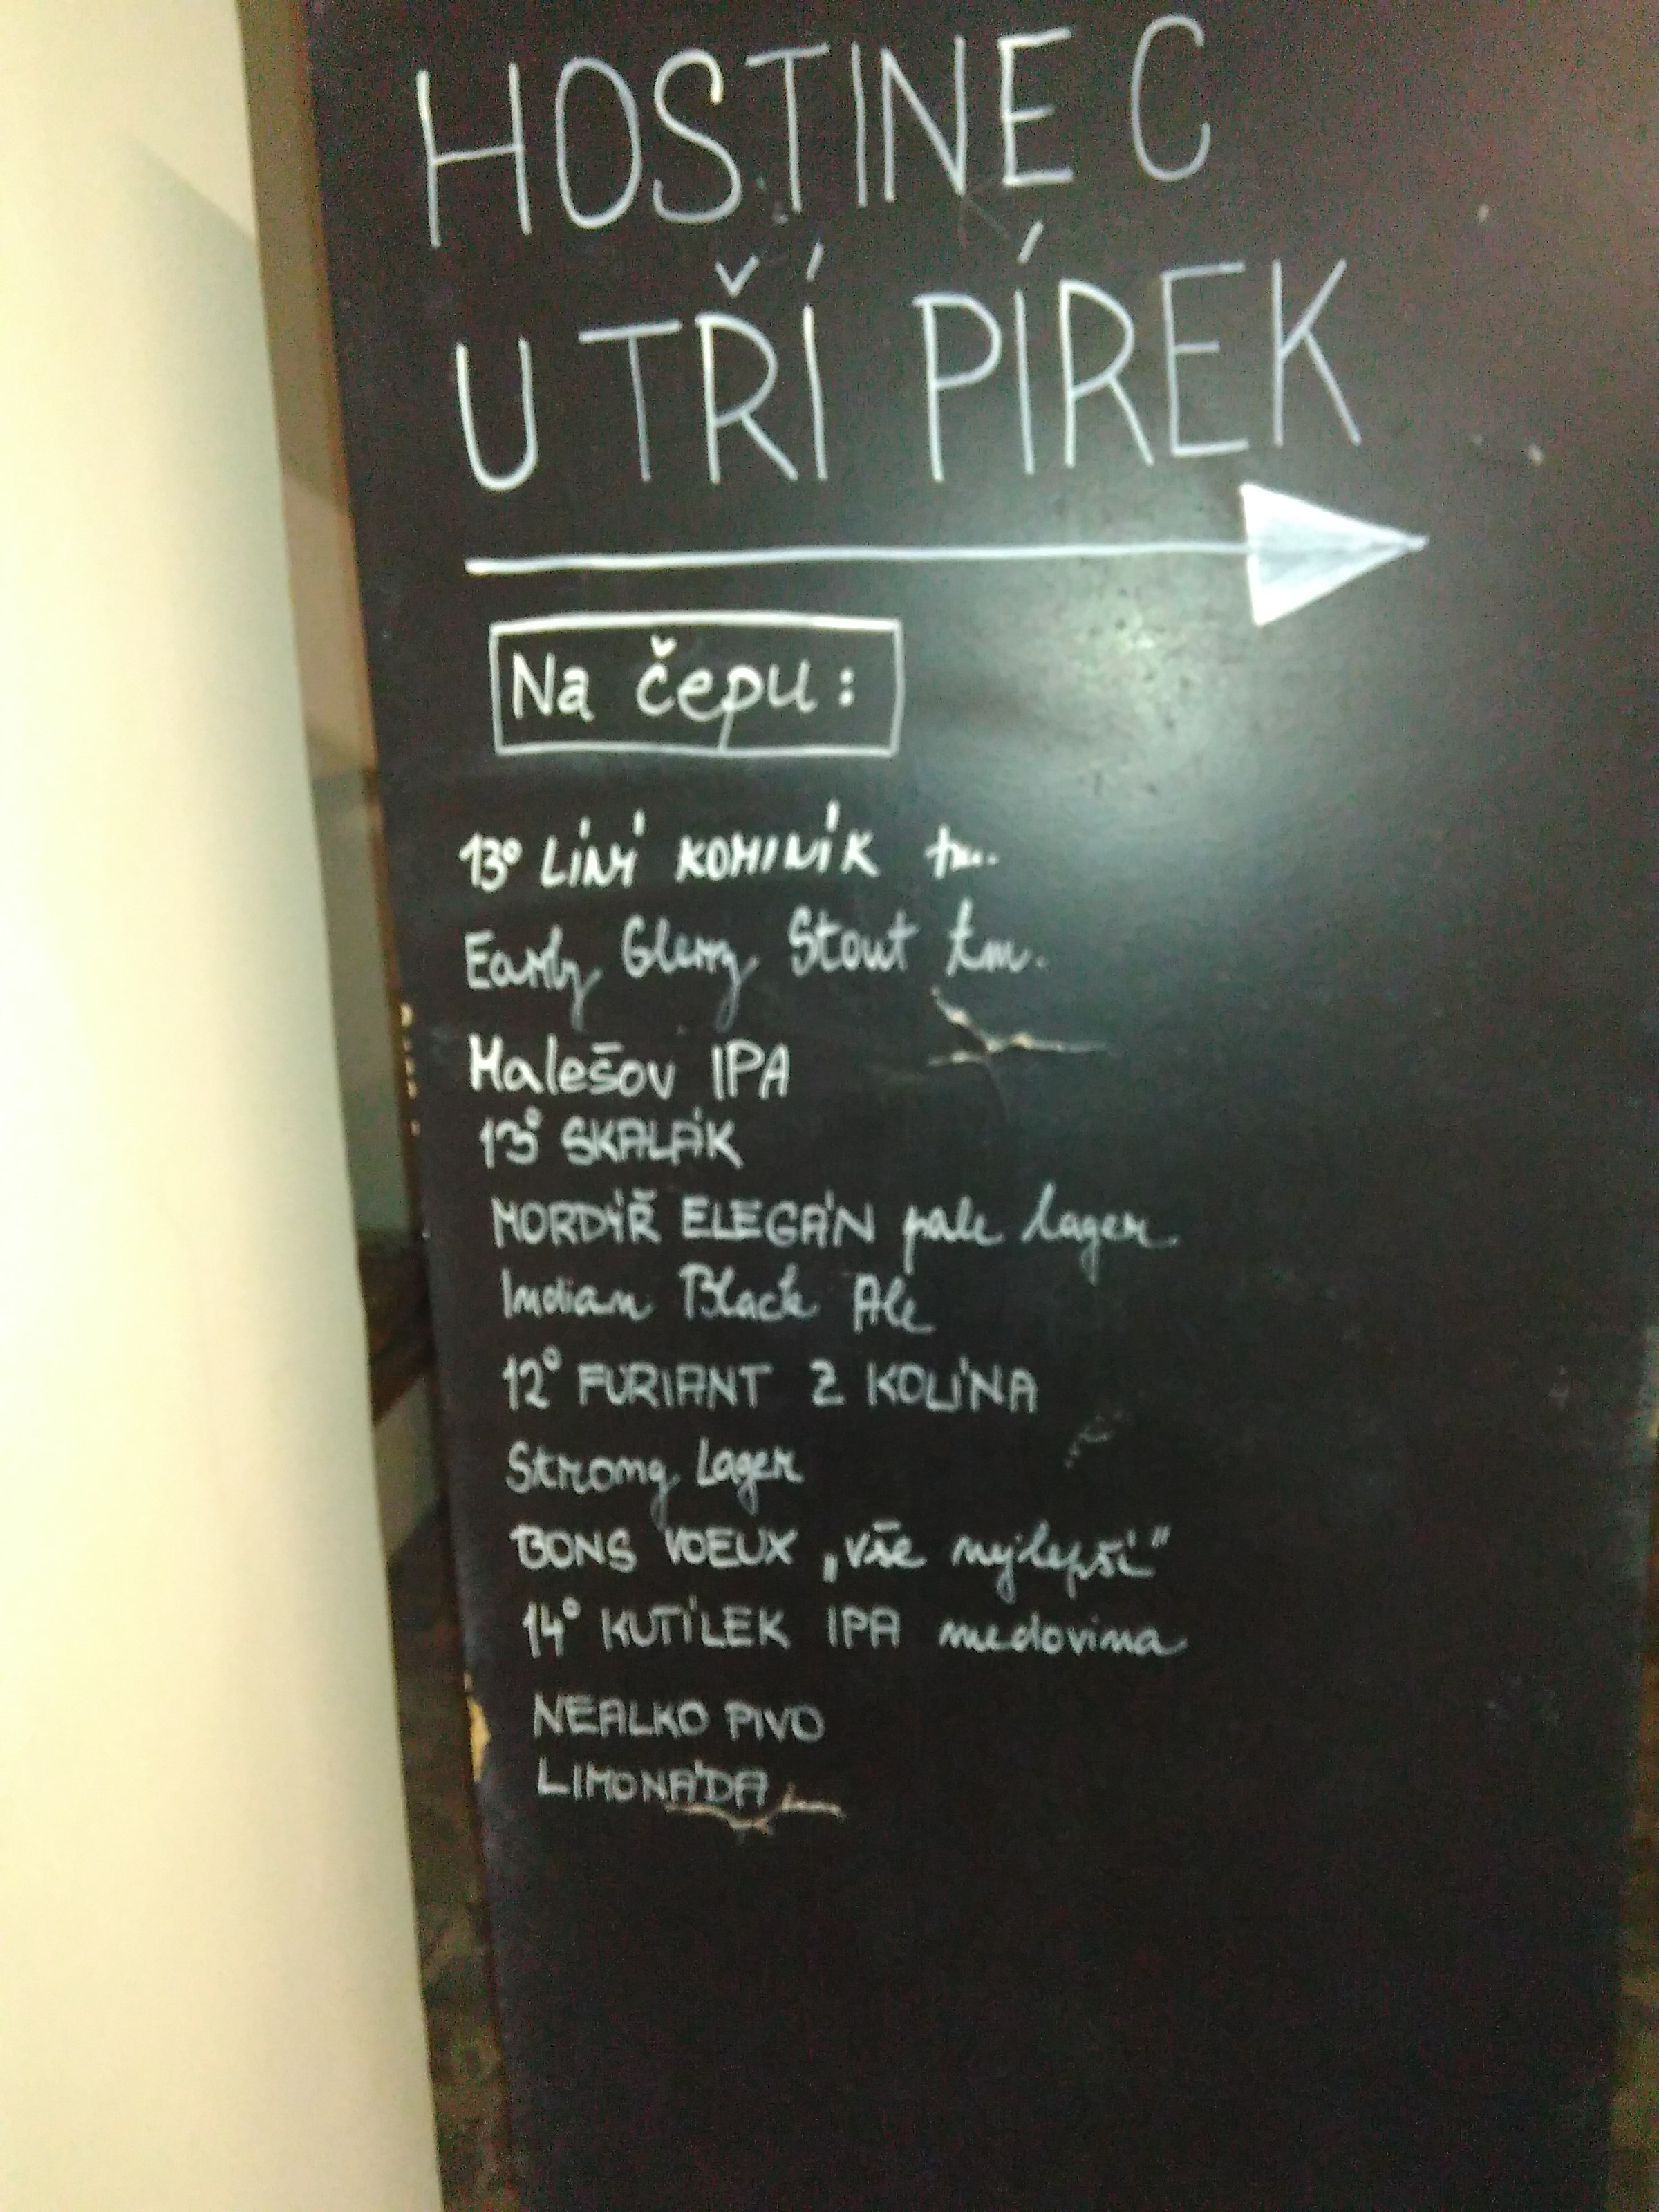 HOSTINEC
U TŘÍ PÍREK
Na čepu:
13° LÍNÍ KOMINÍK tm.
Early Glory Stout tm.
Malešov IPA
13° SKALÁK
MORDÝŘ ELEGÁN pale lager
Indian Black Ale
12° FURIANT Z KOLÍNA
Strong Lager
BONS VOEUX „vše nejlepší"
14° KUTÍLEK IPA medovina
NEALKO PIVO
LIMONÁDA